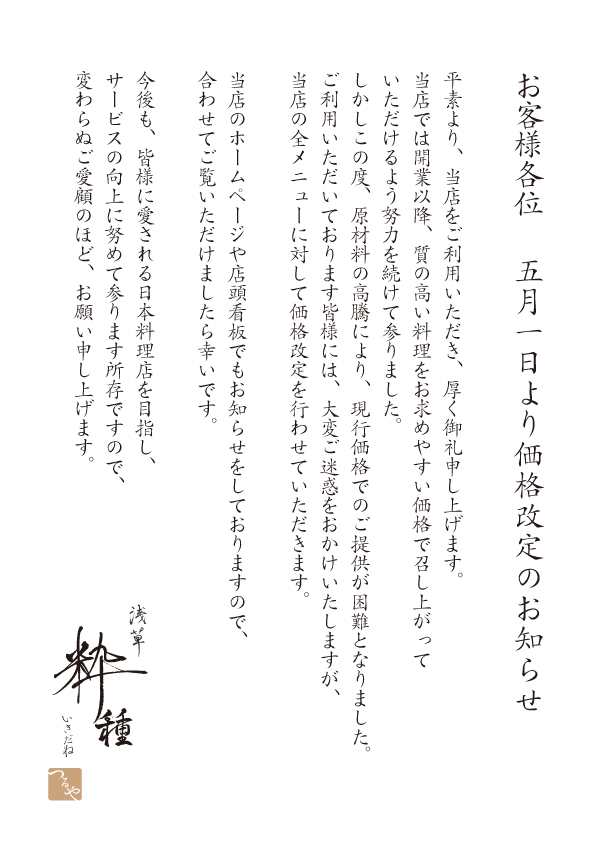 お客様各位　五月一日より価格改定のお知らせ
平素より、当店をご利用いただき、厚く御礼申し上げます。
当店では開業以降、質の高い料理をお求めやすい価格で召し上がって
いただけるよう努力を続けて参りました。
しかしこの度、原材料の高騰により、現行価格でのご提供が困難となりました。
ご利用いただいております皆様には、大変ご迷惑をおかけいたしますが、
当店の全メニューに対して価格改定を行わせていただきます。
当店のホームページや店頭看板でもお知らせをしておりますので、
合わせてご覧いただけましたら幸いです。
今後も、皆様に愛される日本料理店を目指し、
サービスの向上に努めて参ります所存ですので、
変わらぬご愛顧のほど、お願い申し上げます。
浅草
粋種
いきだね
つるや